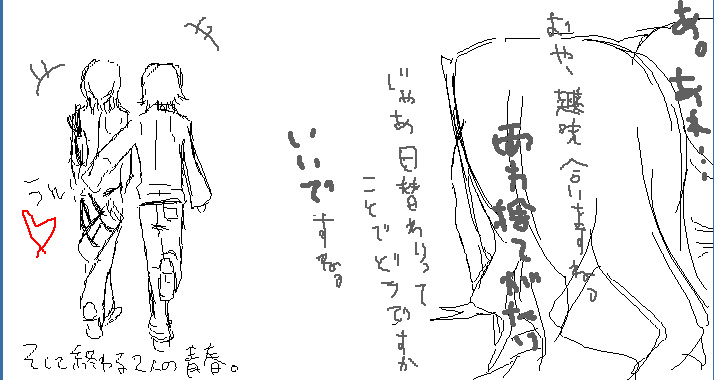 あ。あれ…
おや、趣味合いますね。
捨てがたい
じゃあ日替わりって
ことでどうですか
いいですね。
そして終わる2人の青春。